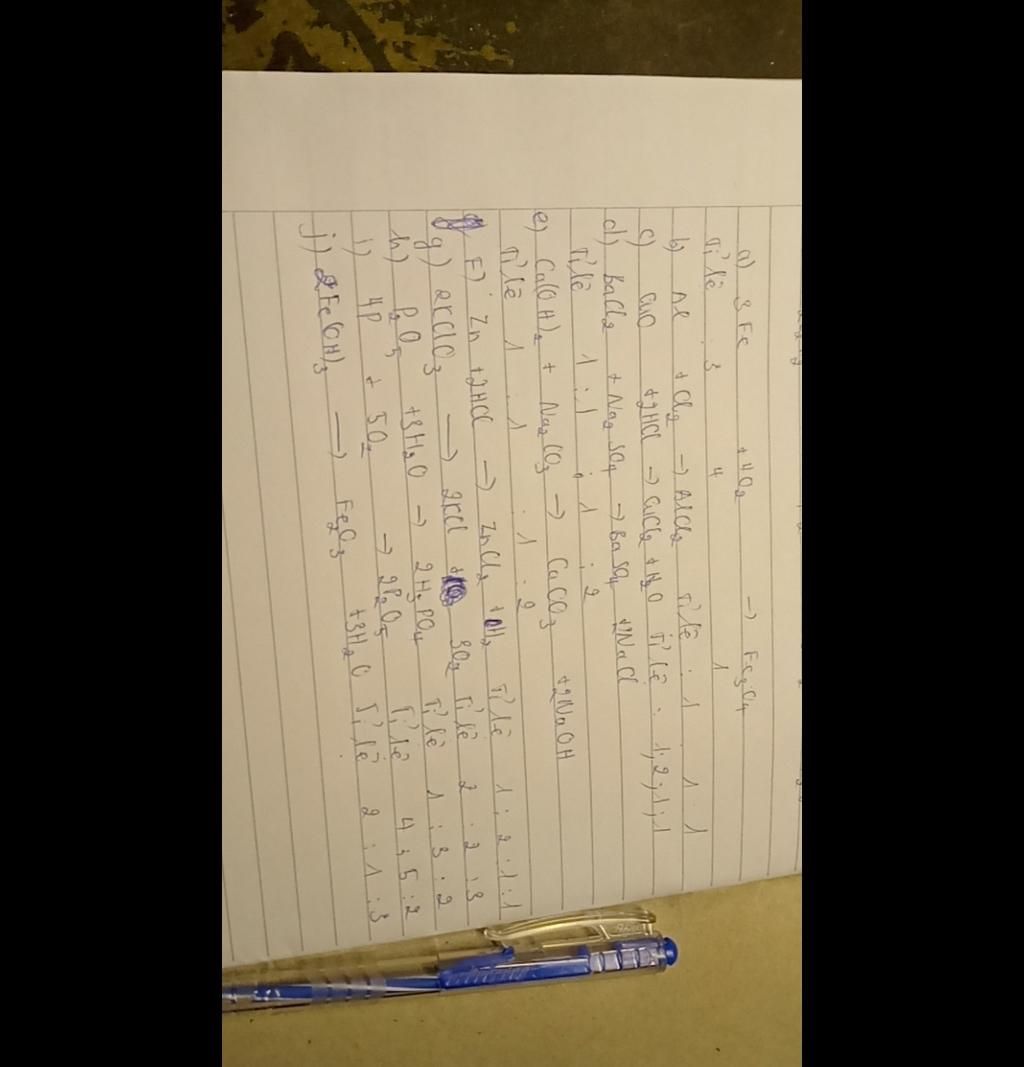 a) 3Fe + 4O2 → Fe3O4
Tỉ lệ : 3 4 1
b) Al + Cl2 → AlCl2 Tỉ lệ : 1 : 1 : 1
c) CuO + 2HCl → CuCl2 + H2O Tỉ lệ : 1 : 2 : 1 : 1
d) BaCl2 + Na2SO4 → BaSO4 + 2NaCl
Tỉ lệ 1 : 1 : 1 : 2
e) Ca(OH)2 + Na2CO3 → CaCO3 + 2NaOH
Tỉ lệ 1 : 1 : 1 : 2
F) Zn + 2HCl → ZnCl2 + H2 Tỉ lệ 1 : 2 : 1 : 1
g) 2KClO3 → 2KCl + 3O2 Tỉ lệ 2 : 2 : 3
h) P2O5 + 3H2O → 2H3PO4 Tỉ lệ 1 : 3 : 2
i) 4P + 5O2 → 2P2O5 Tỉ lệ 4 : 5 : 2
j) 2Fe(OH)3 → Fe2O3 + 3H2O Tỉ lệ 2 : 1 : 3